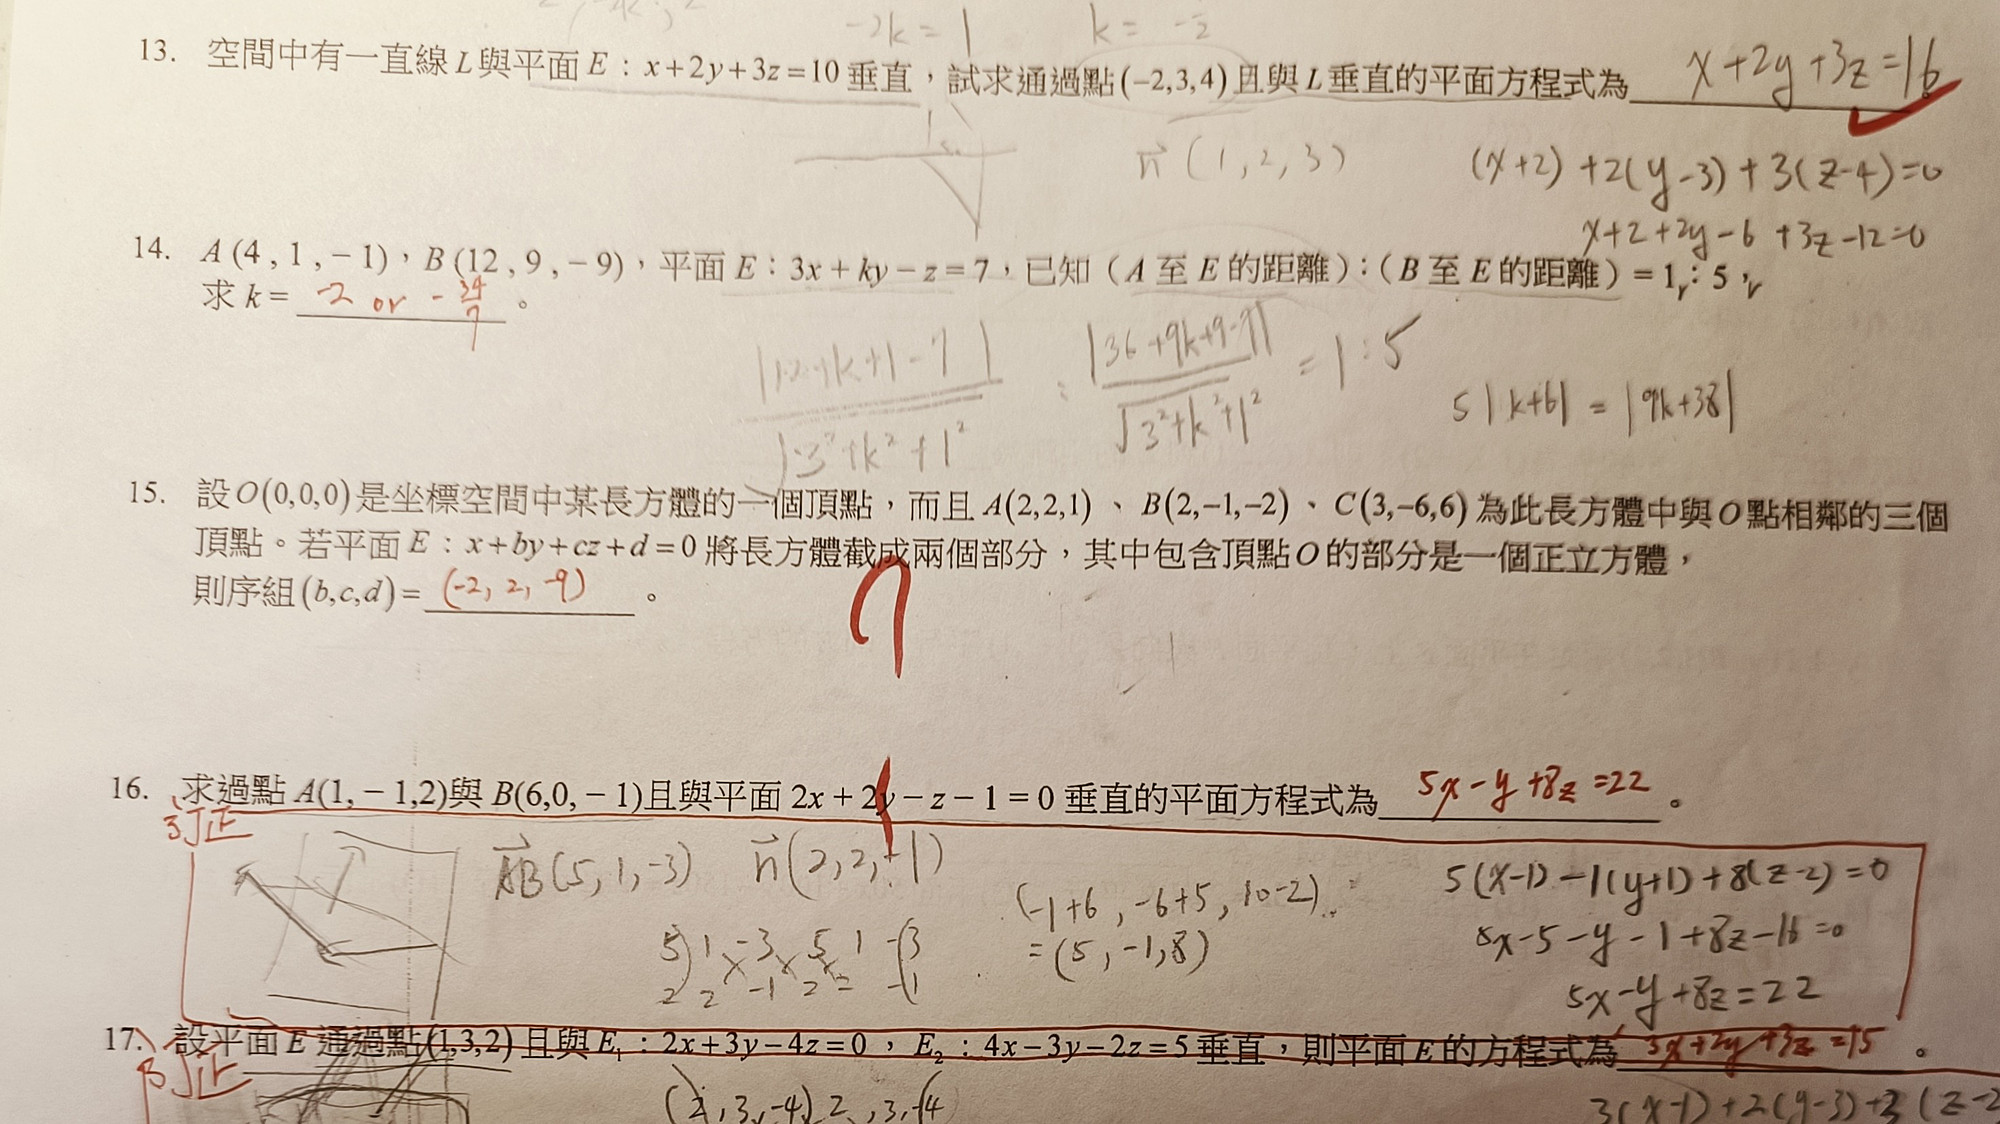 -2k = 1   k = -
13. 空間中有一直線 L 與平面 E：x+2y+3z=10 垂直，試求通過點(-2,3,4)且與 L 垂直的平面方程式為 x+2y+3z=16
n (1,2,3)   (x+2)+2(y-3)+3(z-4)=0
x+2+2y-6+3z-12=0
14. A (4 , 1 , − 1)，B (12 , 9 , − 9)，平面 E：3x + ky − z = 7，已知（A 至 E 的距離）：（B 至 E 的距離）= 1：5，
求 k = -2 or -34/7 。
|12+k+1-7| / √3²+k²+1² : |36+9k+9-7| / √3²+k²+1² = 1:5
5|k+6| = |9k+38|
15. 設 O(0,0,0) 是坐標空間中某長方體的一個頂點，而且 A(2,2,1) 、 B(2,−1,−2) 、 C(3,−6,6) 為此長方體中與 O 點相鄰的三個
頂點。若平面 E：x+by+cz+d=0 將長方體截成兩個部分，其中包含頂點 O 的部分是一個正立方體，
則序組(b,c,d)= (-2, 2, -9) 。
16. 求過點 A(1, − 1,2)與 B(6,0, − 1)且與平面 2x + 2y − z − 1 = 0 垂直的平面方程式為 5x-y+8z=22 。
訂正
AB(5,1,-3)   n(2,2,-1)   5(x-1)-1(y+1)+8(z-2)=0
(-1+6, -6+5, 10-2)
5 1 -3 5 1 -3   = (5, -1, 8)   5x-5-y-1+8z-16=0
2 2 -1 2 2 -1   5x-y+8z=22
17. 設平面 E 通過點(1,3,2) 且與 E₁：2x+3y−4z=0，E₂：4x−3y−2z=5 垂直，則平面 E 的方程式為 3x+2y+3z=15 。
訂正
(2,3,-4) 2,3,-4   3(x-1)+2(y-3)+3(z-2